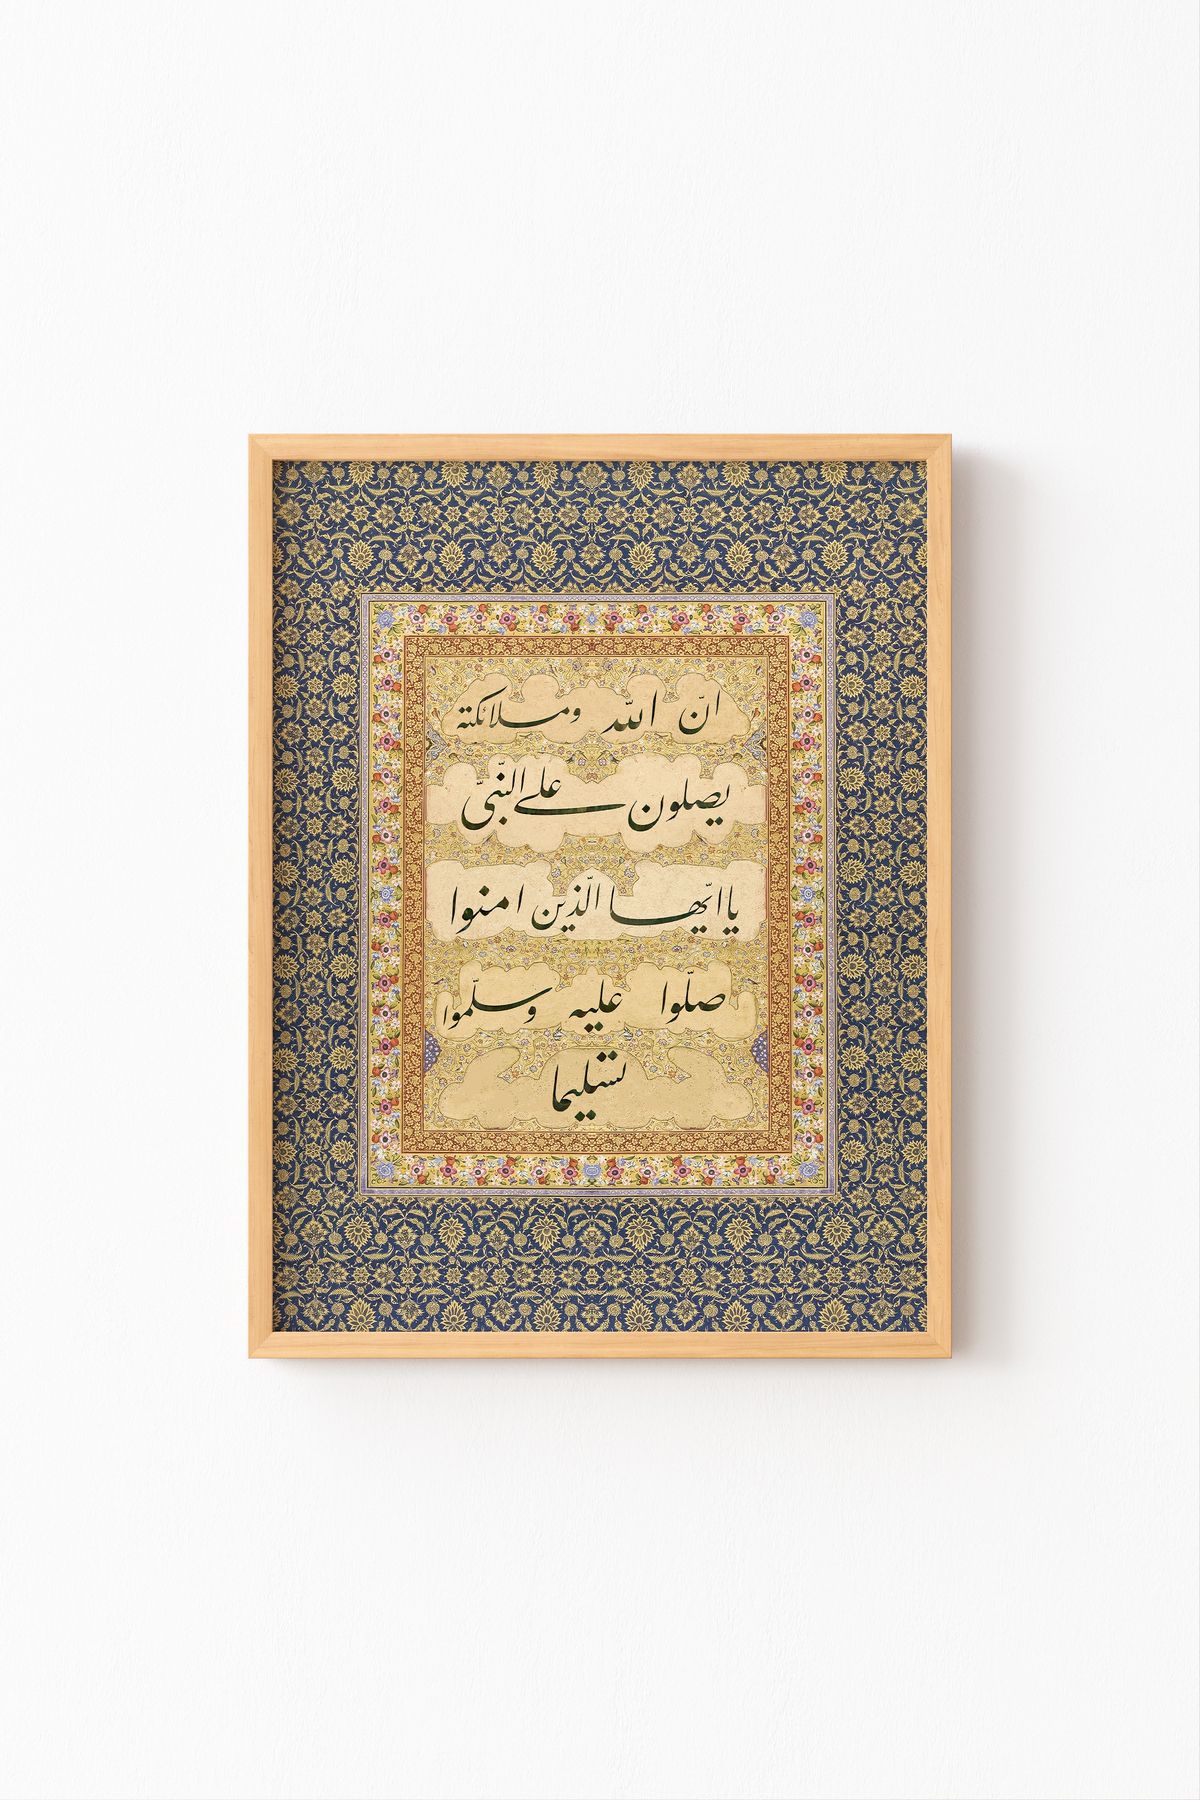 انّ الله وملائكته
يصلون على النّبىّ
يا ايّها الّذين امنوا
صلّوا عليه وسلّموا
تسليما